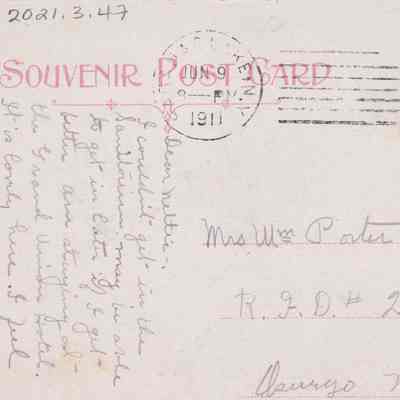 2021.3.47
SOUVENIR POST CARD
JUN 9
PM
1911
Dear Nettie:-
I couldn't get in the
Sanitarium, may be able
to get in later if I get
better am staying at
the Grand Union Hotel.
It is lovely here I feel
Mrs Wm Porter
R. F. D. # 2
Owego N